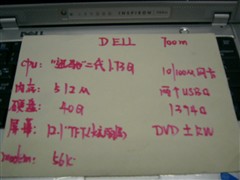 DELL
DELL 700m
CPU: "迅驰"二代 1.73G 10/100M 网卡
内存: 512M 两个USB口
硬盘: 40G 1394口
屏幕: 12.1"TFT DVD±RW
modem: 56K